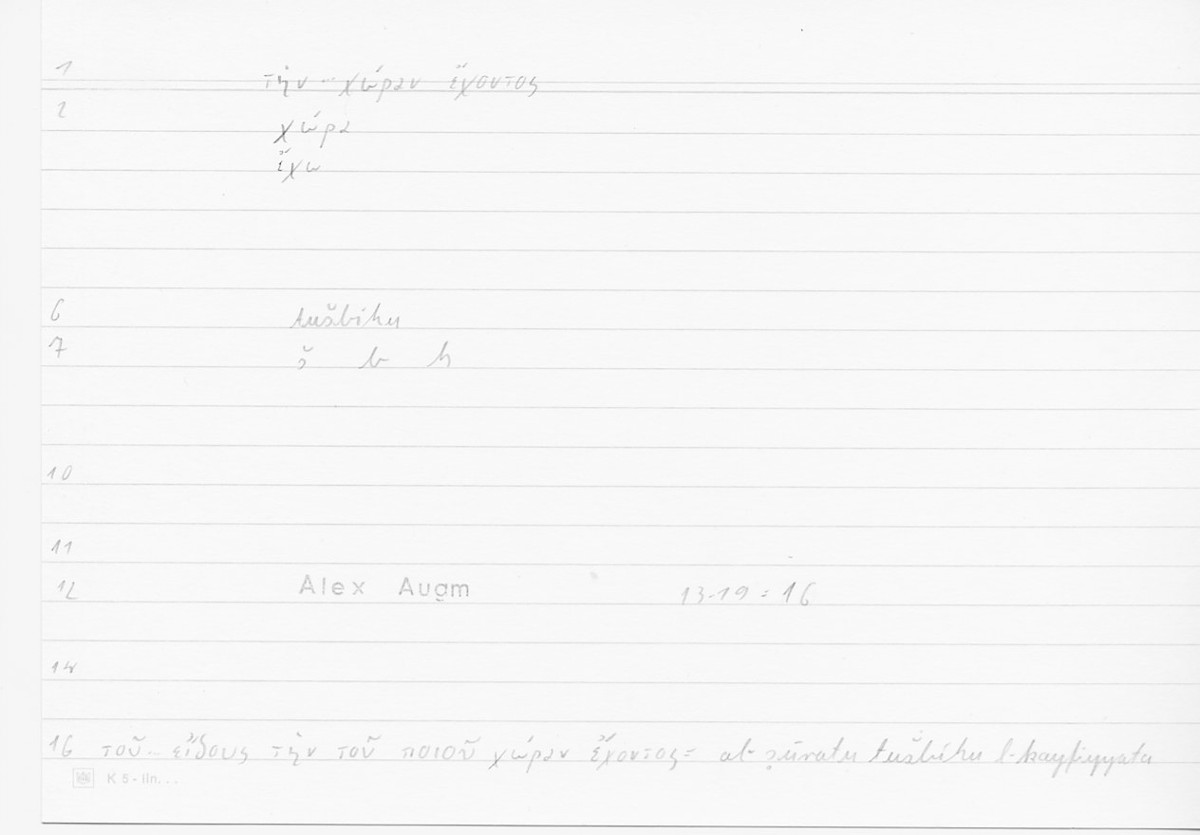 1 τὴν -- χώραν ἔχοντος
2 χώρα
ἔχω
6 tušbihu
7 š b h
10
11
12 Alex Aug̱m 13-19 = 16
14
16 τοῦ -- εἴδους τὴν τοῦ ποιοῦ χώραν ἔχοντος = al-ṣūratu tušbihu l-kayfiyyata
K 5 - lln. . .